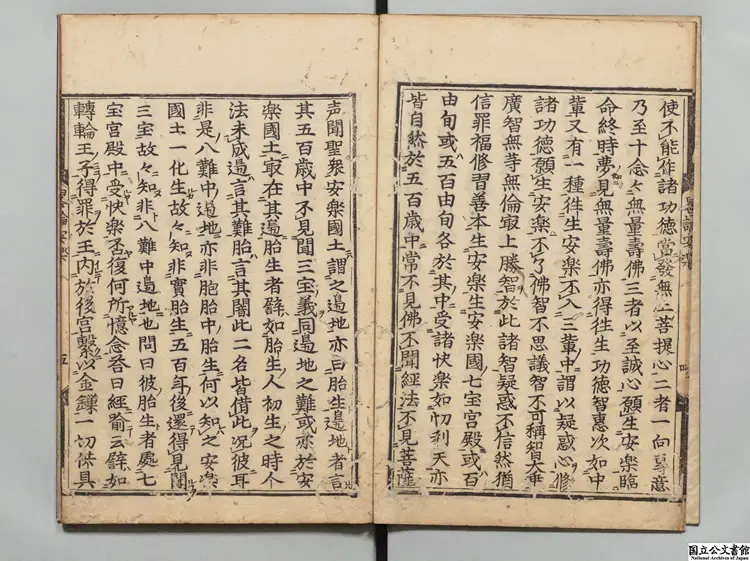 使不能作諸功德當發無上菩提心二者一向專意
乃至十念々無量壽佛三者以至誠心願生安樂臨
命終時夢見無量壽佛亦得徃生功德智惠次如中
軰又有一種徃生安樂不入三軰中謂以疑惑心修
諸功德願生安樂不了佛智不思議智不可稱智大乗
廣智無等無倫冣上勝智於此諸智疑惑不信然猶
信罪福修習善本生安樂生安樂國七宝宮殿或百
由旬或五百由旬各於其中受諸快樂如忉利天亦
皆自然於五百歳中常不見佛不聞經法不見菩薩
四
声聞聖衆安樂國土謂之邊地亦曰胎生邊地者言
其五百歳中不見聞三宝義同邊地之難或亦於安
樂國土冣在其邊胎生者譬如胎生人初生之時人
法未成邊言其難胎言其闇此二名皆借此况彼耳
非是八難中邊地亦非胞胎中胎生何以知之安樂
國土一化生故々知非實胎生五百年後還得見聞
三宝故々知非八難中邊地也問曰彼胎生者處七
宝宮殿中受快樂否復何所憶念答曰經喻云譬如
轉輪王子得罪於王内於後宮繫以金鏁一切供具
畧論安樂
五
国立公文書館
National Archives of Japan